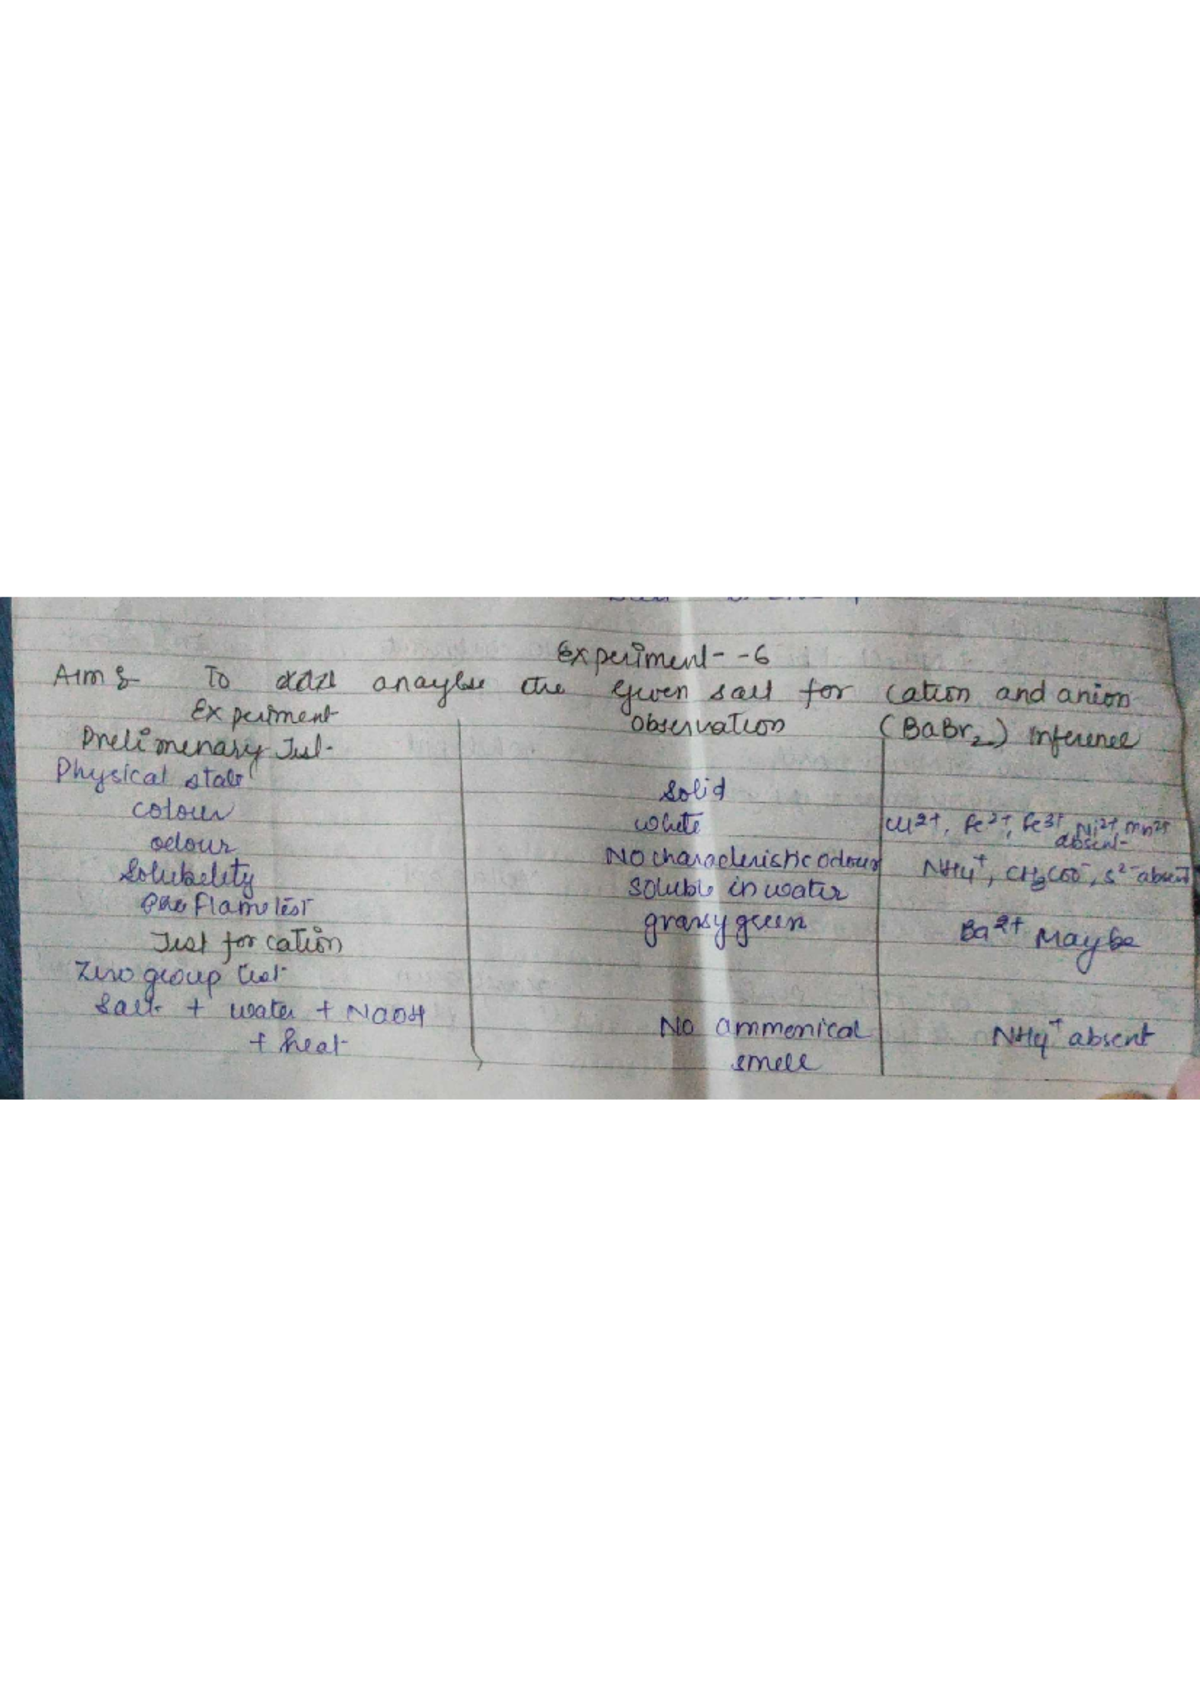 Experiment - 6
Aim :- To anaylse the given salt for cation and anion
Experiment Observation (BaBr2) Inference
Prelimenary Test
Physical state Solid
colour white Cu2+, Fe2+, Fe3+, Ni2+, Mn2+ absent
odour No characteristic odour NH4+, CH3COO-, S2- absent
Solubelity Soluble in water
Flame test grassy green Ba2+ Maybe
Test for cation
Zero group test
Salt + water + NaOH No ammonical NH4+ absent
+ heat smell